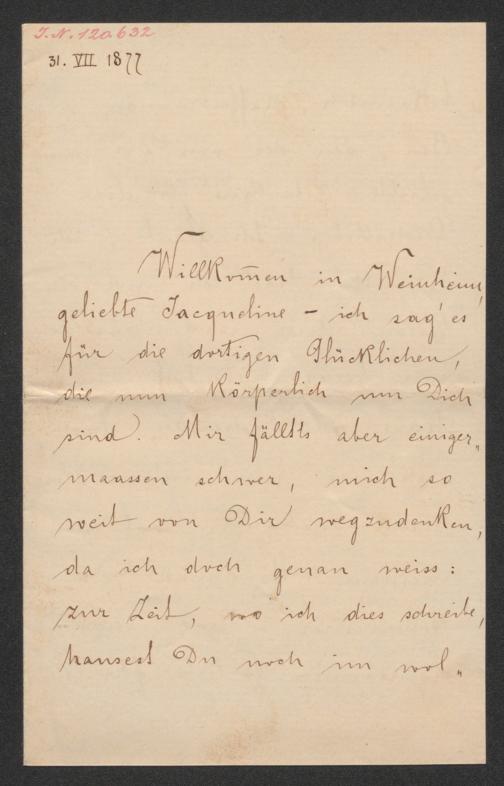 I.N. 120.632
31. VII 1877
Willkom̄en in Weinheim,
geliebte Jacqueline – ich sag' es
für die dortigen Glücklichen,
die nun körperlich um Dich
sind. Mir fällts aber einiger„
maassen schwer, mich so
weit von Dir wegzudenken,
da ich doch genau weiss:
zur Zeit, wo ich dies schreibe,
hausest Du noch im wol„